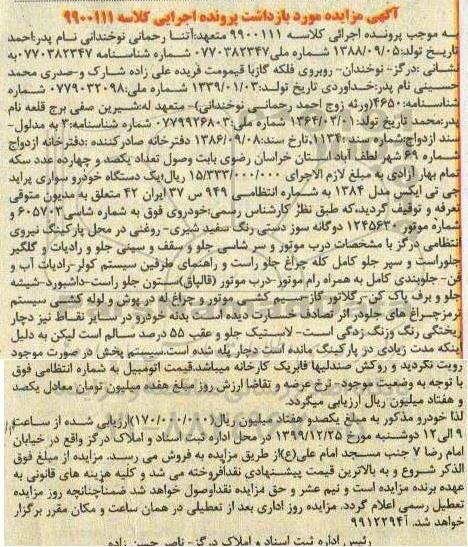 آگهی مزایده مورد بازداشت پرونده اجرایی کلاسه ۹۹۰۰۱۱۱
به موجب پرونده اجرائی کلاسه ۹۹۰۰۱۱۱ متعهد:آتنا رحمانی نوخندانی نام پدر:احمد
تاریخ تولد:۱۳۸۸/۰۹/۰۵ شماره ملی:۰۷۷۰۳۸۲۳۴۷ شماره شناسنامه ۰۷۷۰۳۸۲۳۴۷به
نشانی :درگز- نوخندان- روبروی فلکه گازبا قیمومت فریده علی زاده شارک و-صدری محمد
حسینی نام پدر:خدآوردی تاریخ تولد:۱۳۳۹/۰۱/۰۳ شماره ملی:۰۷۷۹۰۳۲۰۹۸ شماره
شناسنامه:۴۶۵۰(ورثه زوج احمد رحمانی نوخندانی)- متعهد له:شیرین صفی برج قلعه نام
پدر:محمد تاریخ تولد:۱۳۶۴/۰۳/۰۱ شماره ملی:۰۷۷۹۹۲۶۸۰۳ شماره شناسنامه:۳ به مدلول-
سند ازدواج:شماره سند :۱۱۳۴،تارخ سند:۱۳۸۶/۰۹/۰۸ دفترخانه صادرکننده :دفترخانه ازدواج
شماره ۶۹ شهر لطف آباد استان خراسان رضوی بابت وصول تعداد یکصد و چهارده عدد سکه
تمام بهار آزادی به مبلغ لازم الاجرای ۱۵/۳۳۳/۰۰۰/۰۰۰ ریال؛یک دستگاه خودرو سواری پراید
جی تی ایکس مدل ۱۳۸۴ به شماره انتظامی ۹۴۹ س ۳۷ ایران ۴۲ متعلق به مدیون متوقی
تعرفه و توقیف گردید،که طبق نظر کارشناس رسمی:خودروی فوق به شماره شاسی ۶۰۵۷۰۳ و
شماره موتور ۱۲۴۵۶۳۰ دوگانه سوز دستی رنگ سفید شیری- روغنی در محل پارکینگ نیروی
انتظامی درگز با مشخصات درب موتور و سر شاسی جلو و سقف و سینی جلو و رادیات و گلگیر
جلوراست و سپر جلو کامل کله چراغ جلو راست و راهنمای طرفین سیستم کولر-رادیات آب و
فن- جلوبندی کامل به همراه رام موتور-درب موتور (قالپاق)ستون جلو راست-داشبورد-شیشه
جلو و برف پاک کن-رگلاتور گاز-سیم کشی موتور و چراغ له در پوش و لوله کشی سیستم
ترمزچراغ های جلودر اثر تصادف خسارت دیده است بدنه خودرو در سایر نقاط نیز دچار
ریختگی رنگ وزنگ زدگی است- لاستیک جلو و عقب ۵۵ درصد سالم است لیکن به دلیل
اینکه مدت زیادی در پارکینگ مانده است دچار پله شده است.سیستم پخش در صورت موجود
رویت نگردید و روکش صندلیها فابریک کارخانه میباشد.قیمت اتومبیل به شماره انتظامی فوق
با توجه به وضعیت موجود- نرخ عرضه و تقاضا ارزش روز مبلغ هفده میلیون تومان معادل یکصد
و هفتاد میلیون ریال ارزیابی میگردد.
لذا خودرو مذکور به مبلغ یکصدو هفتاد میلیون ریال(۱۷۰/۰۰۰/۰۰۰)ارزیابی شده از ساعت
۹ الی ۱۲ دوشنبه مورخ ۱۳۹۹/۱۲/۲۵ در محل اداره ثبت اسناد و املاک درگز واقع در خیابان
امام رضا ۷ جنب مسجد امام علی(ع)از طریق مزایده به فروش می رسد. مزایده از مبلغ فوق
الذکر شروع و به بالاترین قیمت پیشنهادی نقدافروخته می شد و کلیه هزینه های قانونی به
عهده برنده مزایده است و نیم عشر و حق مزایده نقداوصول خواهد شد ضمناًچنانچه روز مزایده
تعطیل رسمی اعلام گردد. مزایده روز اداری بعد از تعطیلی در همان ساعت و مکان مقرر برگزار
خواهد شد. آ۹۹۱۲۲۹۴
رئیس اداره ثبت اسناد و املاک درگز- ناصر حسن زاده